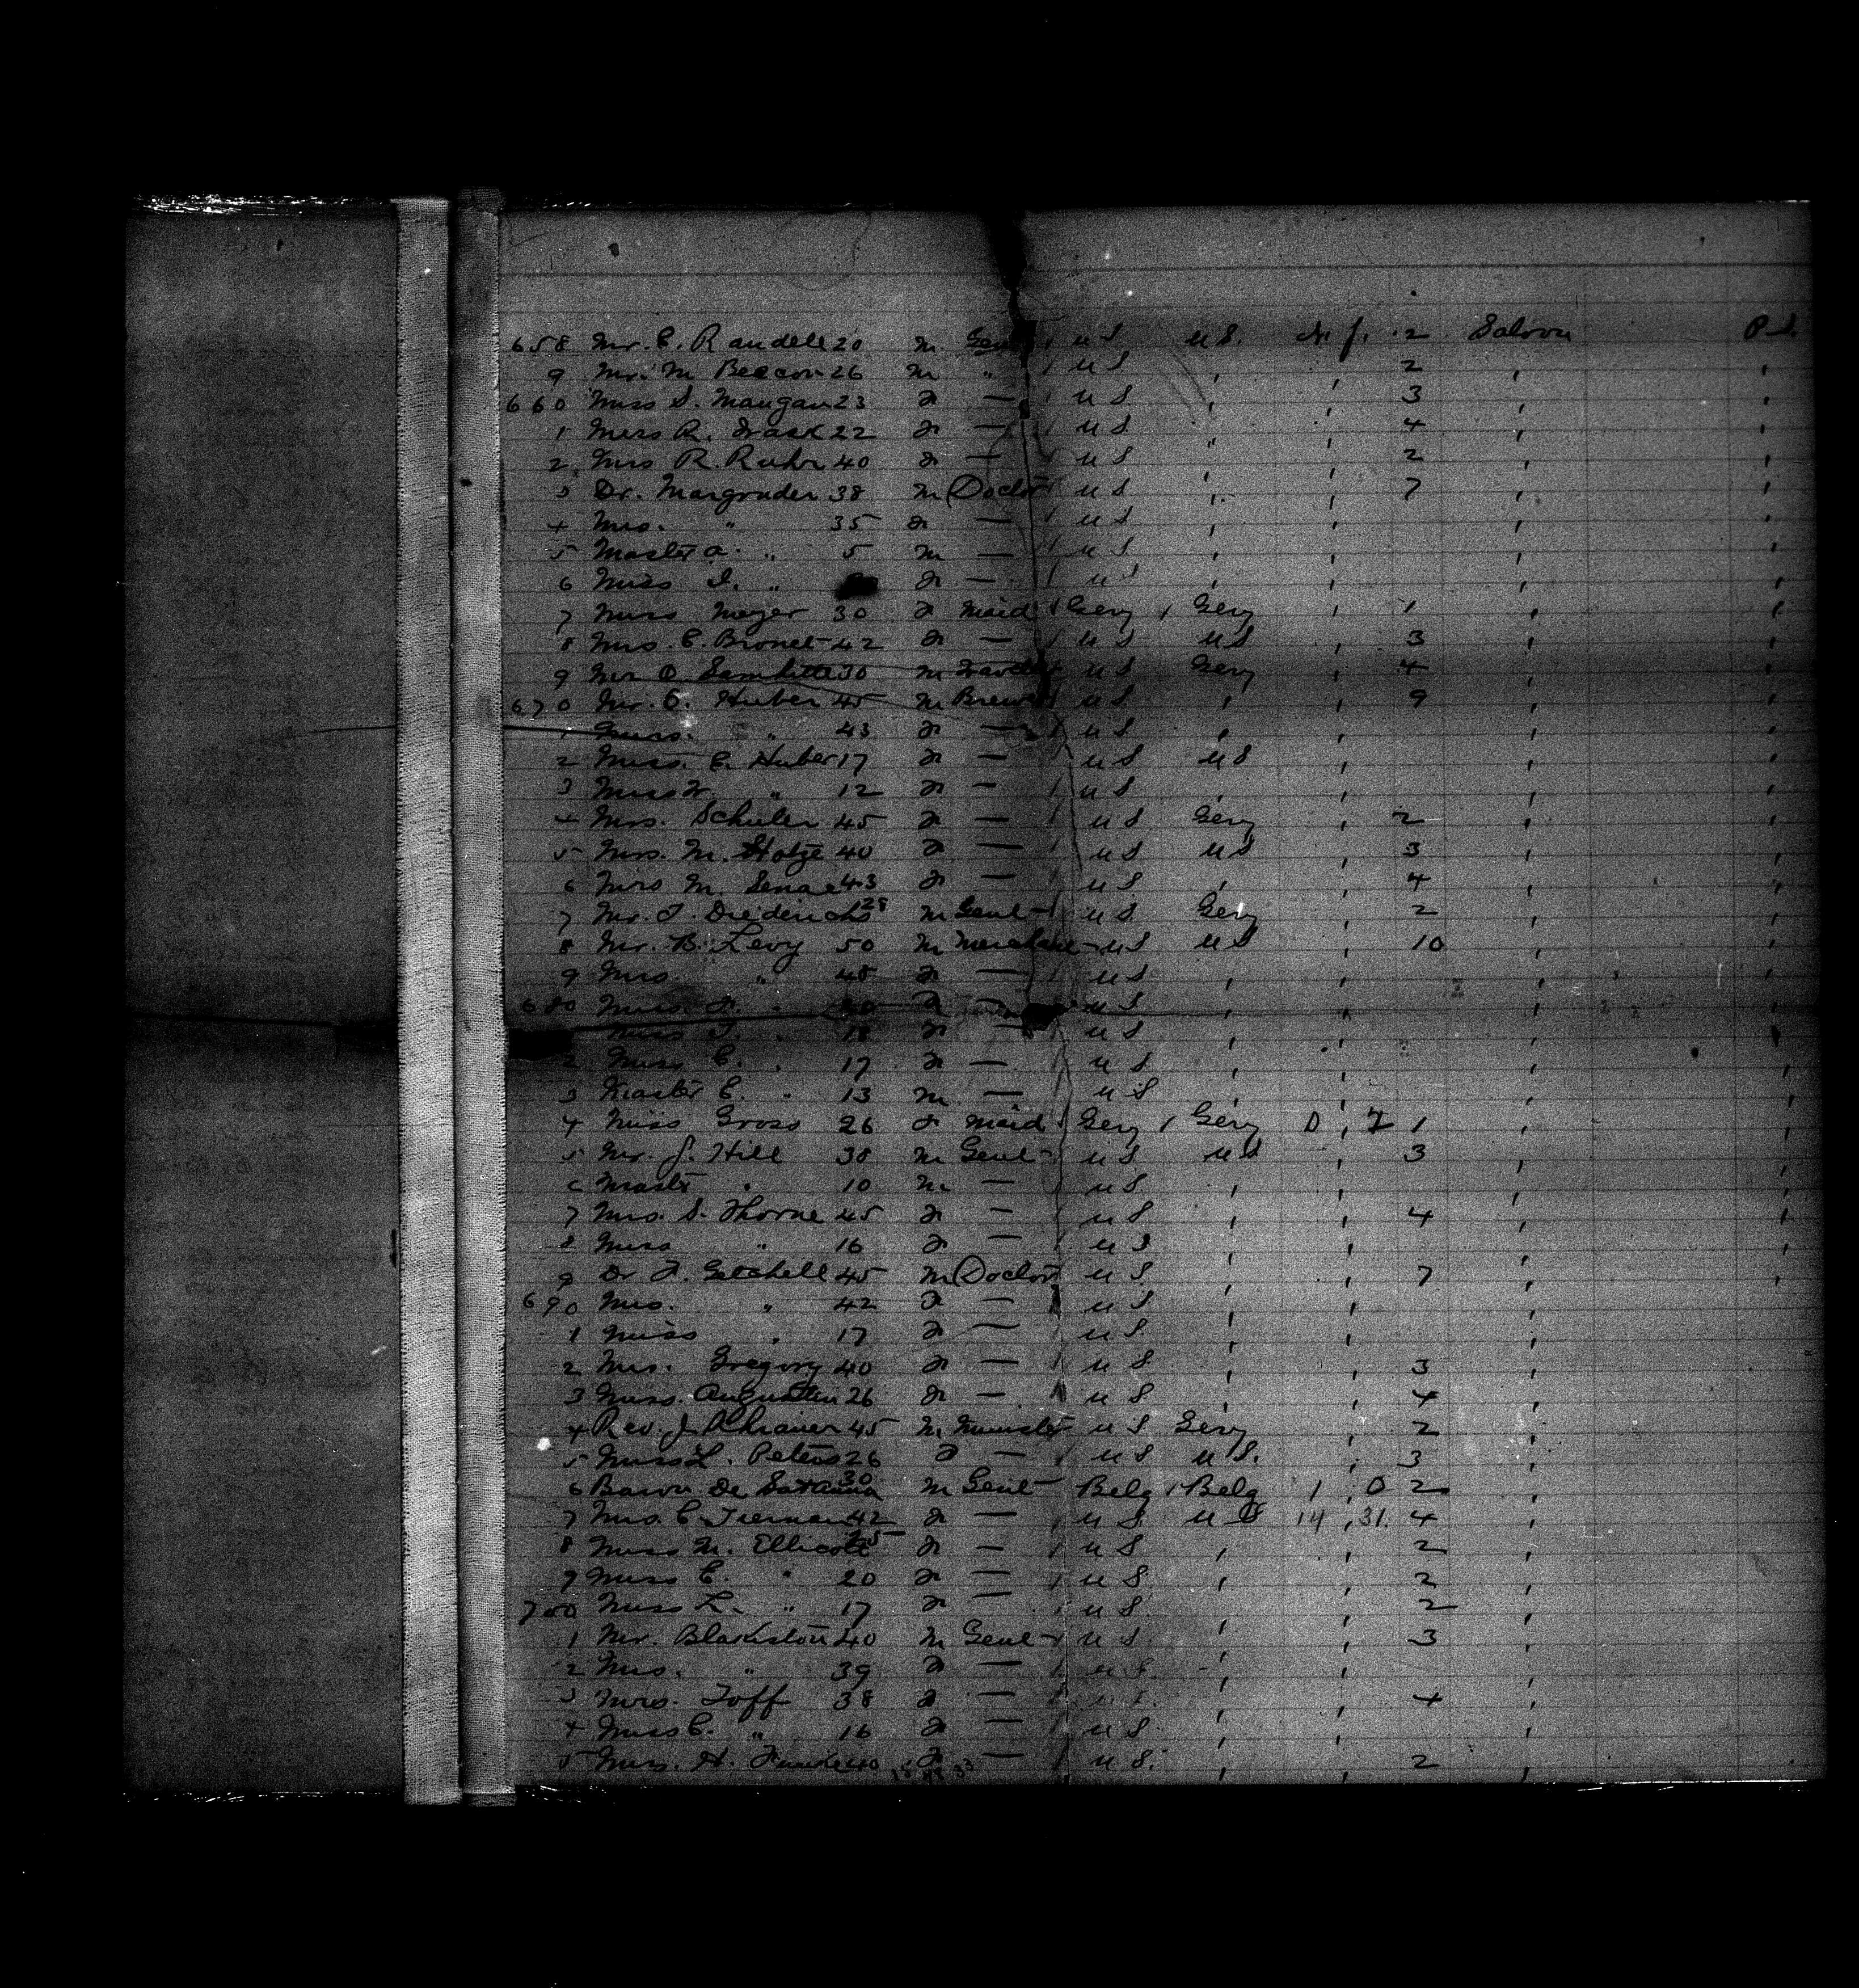 658 Mr. C. Randell 20 M. Gent / U S U S. N. J. 2 Saloon P. S.
9 Mr. M Beacon 26 M " / U S , 2 , ,
660 Miss S. Mangan 23 F — / U S , , 3 ,
1 Miss R. Trask 22 F — / U S " , 4 , ,
2 Mrs R. Ruhr 40 F — / U S , , 2 ,
3 Dr. Margruder 38 M Doctor U S , , 7 , ,
4 Mrs. " 35 F — / U S , , , ,
5 Master A. " 5 M — / U S , , , ,
6 Miss I. " F — / U S , , , ,
7 Miss Meyer 30 F Maid / Gery / Gery , 1 , ,
8 Mrs. C. Bronet 42 F — / U S U S , 3 , ,
9 Mr O. 30 M U S Gery , 4 , ,
670 Mr. C. Huber 45 M Brewer U S , , 9 , ,
1 Mrs. " 43 F — / U S , , , ,
2 Miss. C. Huber 17 F — / U S U S , , ,
3 Miss " 12 F — / U S , , , ,
4 Mrs. Schuler 45 F — / U S Gery , 2 , ,
5 Mrs. M. Hotze 40 F — / U S U S , 3 , ,
6 Mrs M. 43 F — / U S , , 4 , ,
7 Mr. F. Diederichs 28 M Gent / U S Gery , 2 , ,
8 Mr. B. Levy 50 M Merchant U S U S , 10 , ,
9 Mrs " 48 F — / U S , , , ,
680 Miss. " 20 F — U S , , , ,
Miss " 18 F — U S , , , ,
2 Miss C. " 17 F — / U S , , , ,
3 Master C. " 13 M — U S , , , ,
4 Miss Gross 26 F Maid / Gery / Gery 0 , 1 , ,
5 Mr. J. Hill 38 M Gent U S U S , 3 , ,
6 Mastr " 10 M — U S , , , ,
7 Mrs. S. Thorne 45 F — / U S , , 4 , ,
8 Miss " 16 F — / U S , , , ,
9 Dr F. Getchell 45 M Doctor U S , , 7 , ,
690 Mrs. " 42 F — U S , , ,
1 Miss " 17 F — U S , , ,
2 Mrs. Gregory 40 F — / U S , , 3 ,
3 Miss. Augustin 26 F — U S , , 4 ,
4 Rev. J. 45 M. Minister U S Gery , 2 ,
5 Miss L. Peters 26 F — U S U S. , 3 ,
6 Baron De 30 M Gent Belg / Belg 1 , 0 2 ,
7 Mrs. C. Tiernan 42 F — / U S U S 14 , 31. 4 ,
8 Miss M. Ellicott F — / U S , , 2 ,
9 Miss C. " 20 F — / U S , , 2 ,
700 Miss L. " 17 F — / U S , , 2 ,
1 Mr. Blakiston 40 M Gent / U S , , 3 ,
2 Mrs. " 39 F — / U S , , ,
3 Mrs. Toff 38 F — / U S. , , 4 ,
4 Miss C. " 16 F — / U S , , ,
5 Mrs. H. 40 F — / U S. , , 2 ,